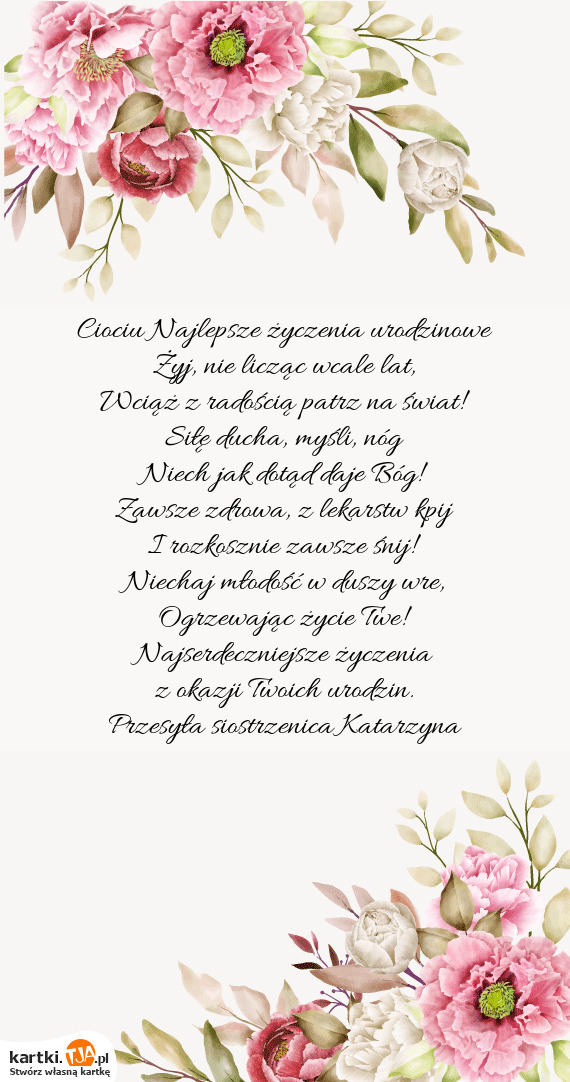 Ciociu Najlepsze życzenia urodzinowe
Żyj, nie licząc wcale lat,
Wciąż z radością patrz na świat!
Siłę ducha, myśli, nóg
Niech jak dotąd daje Bóg!
Zawsze zdrowa, z lekarstw kpij
I rozkosznie zawsze śnij!
Niechaj młodość w duszy wre,
Ogrzewając życie Twe!
Najserdeczniejsze życzenia
z okazji Twoich urodzin.
Przesyła siostrzenica Katarzyna
kartki.TJA.pl
Stwórz własną kartkę